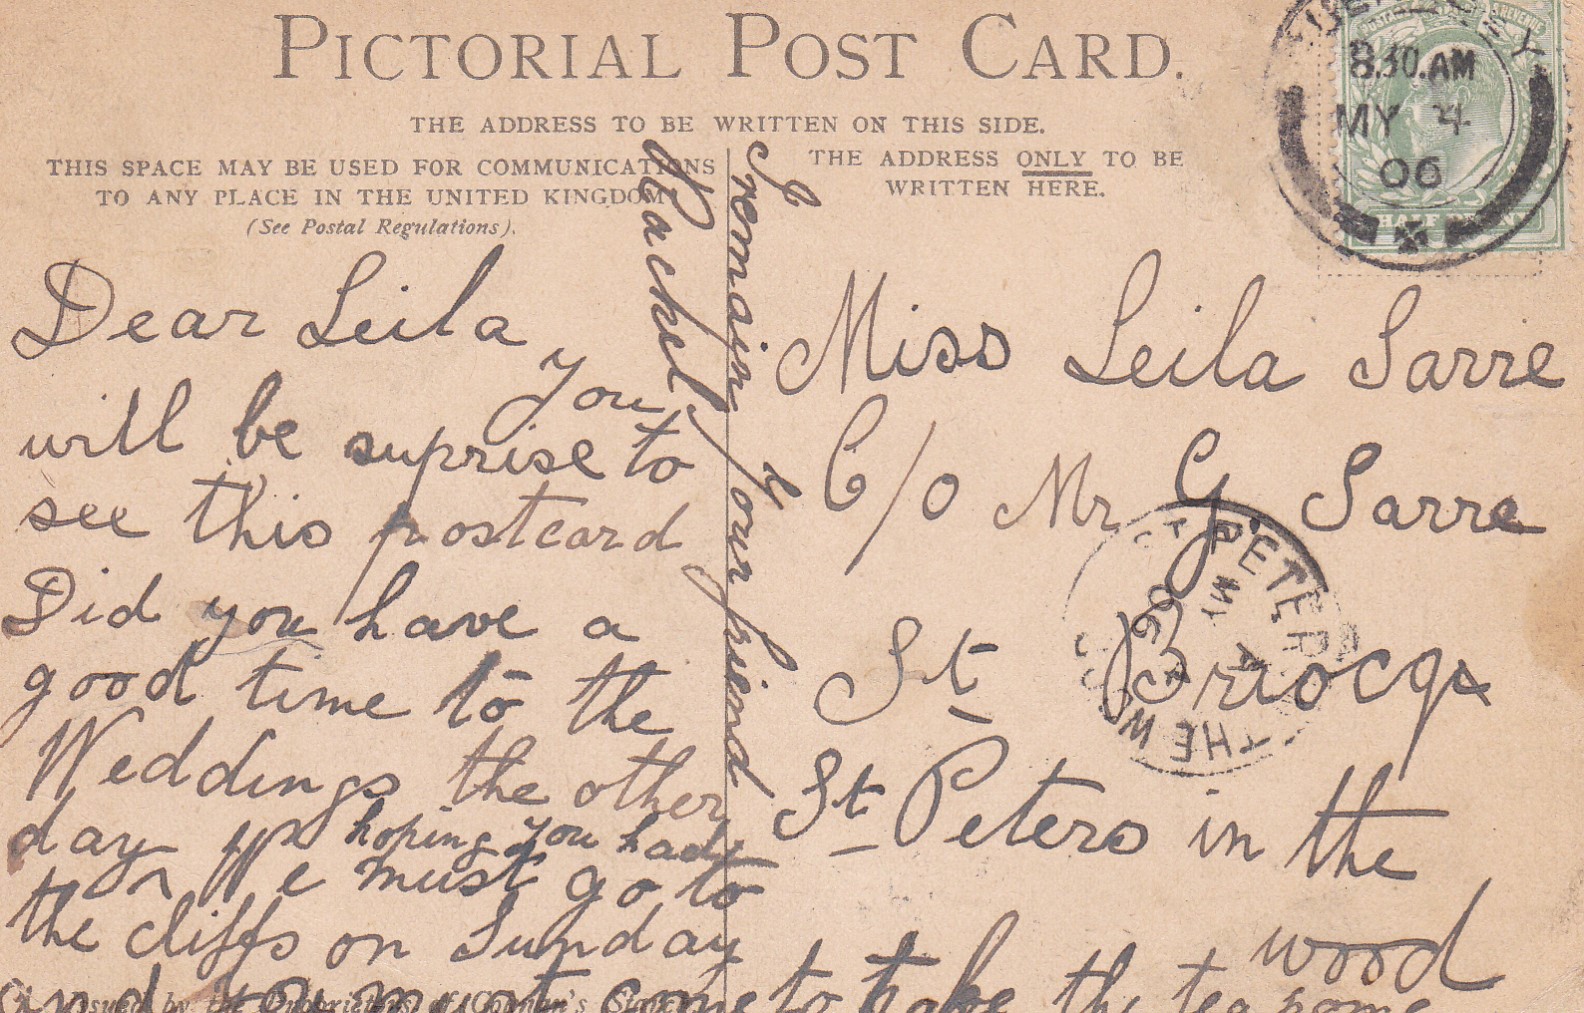 PICTORIAL POST CARD.
THE ADDRESS TO BE WRITTEN ON THIS SIDE.
THIS SPACE MAY BE USED FOR COMMUNICATIONS
TO ANY PLACE IN THE UNITED KINGDOM
(See Postal Regulations).
THE ADDRESS ONLY TO BE
WRITTEN HERE.
8.30.AM
MY 4
06
POSTAGE & REVENUE
HALF PENNY
Dear Leila
You
will be suprise to
see this postcard
Did you have a
good time to the
Weddings the other
day hoping you had
We must go to
the cliffs on Sunday
and you must come to take the tea
I remain your friend
Rachel
Miss Leila Sarre
C/o Mr G Sarre
St Briocq
St Peters in the
wood
ST PETER
THE WOOD
MY 4
06
issued by the Proprietors of